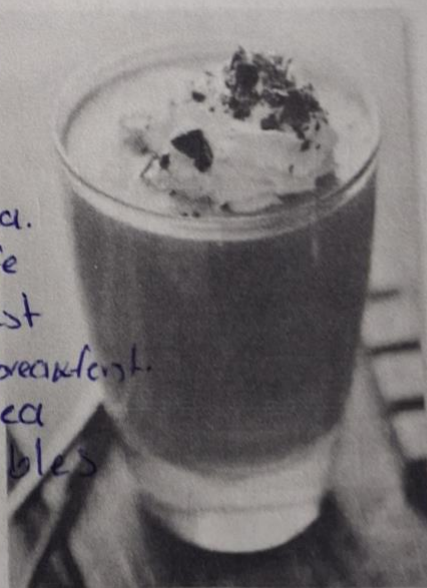 a.
e
st
breakfast.
ea
bles